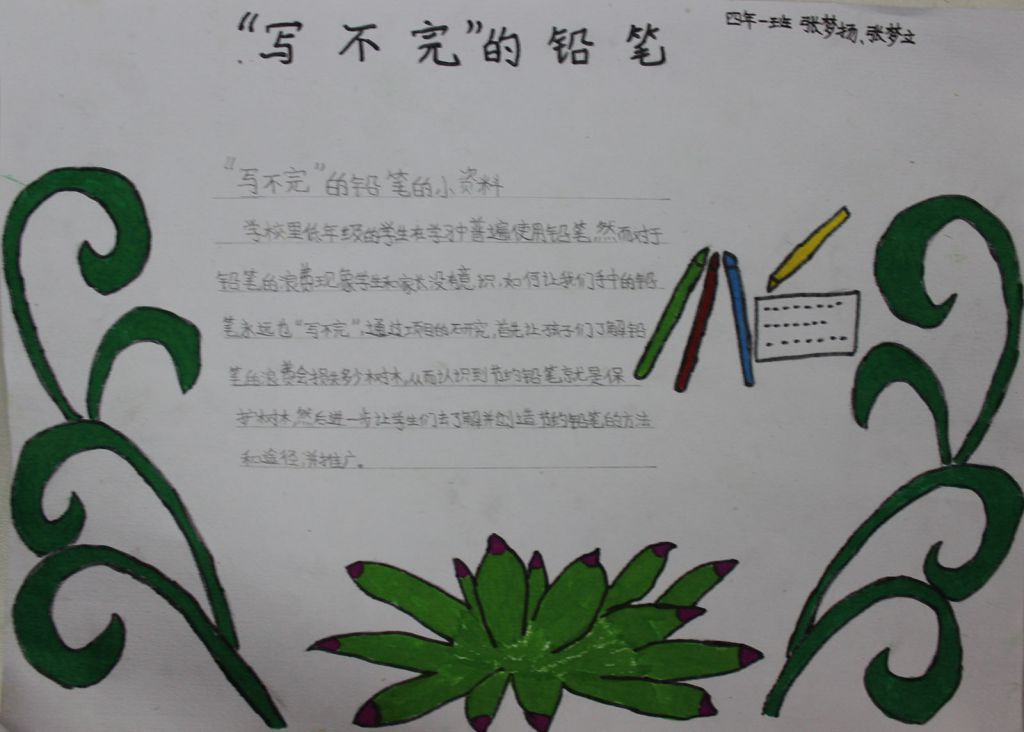 “写不完”的铅笔
四年一班 张梦扬、张梦立
“写不完”的铅笔的小资料
学校里低年级的学生在学习中普遍使用铅笔,然而对于
铅笔的浪费现象学生和家长没有意识,如何让我们手中的铅
笔永远也“写不完”,通过项目的研究,首先让孩子们了解铅
笔的浪费会损失多少树木,从而认识到节约铅笔就是保
护树木,然后进一步让学生们去了解并创造节约铅笔的方法
和途径,并推广。